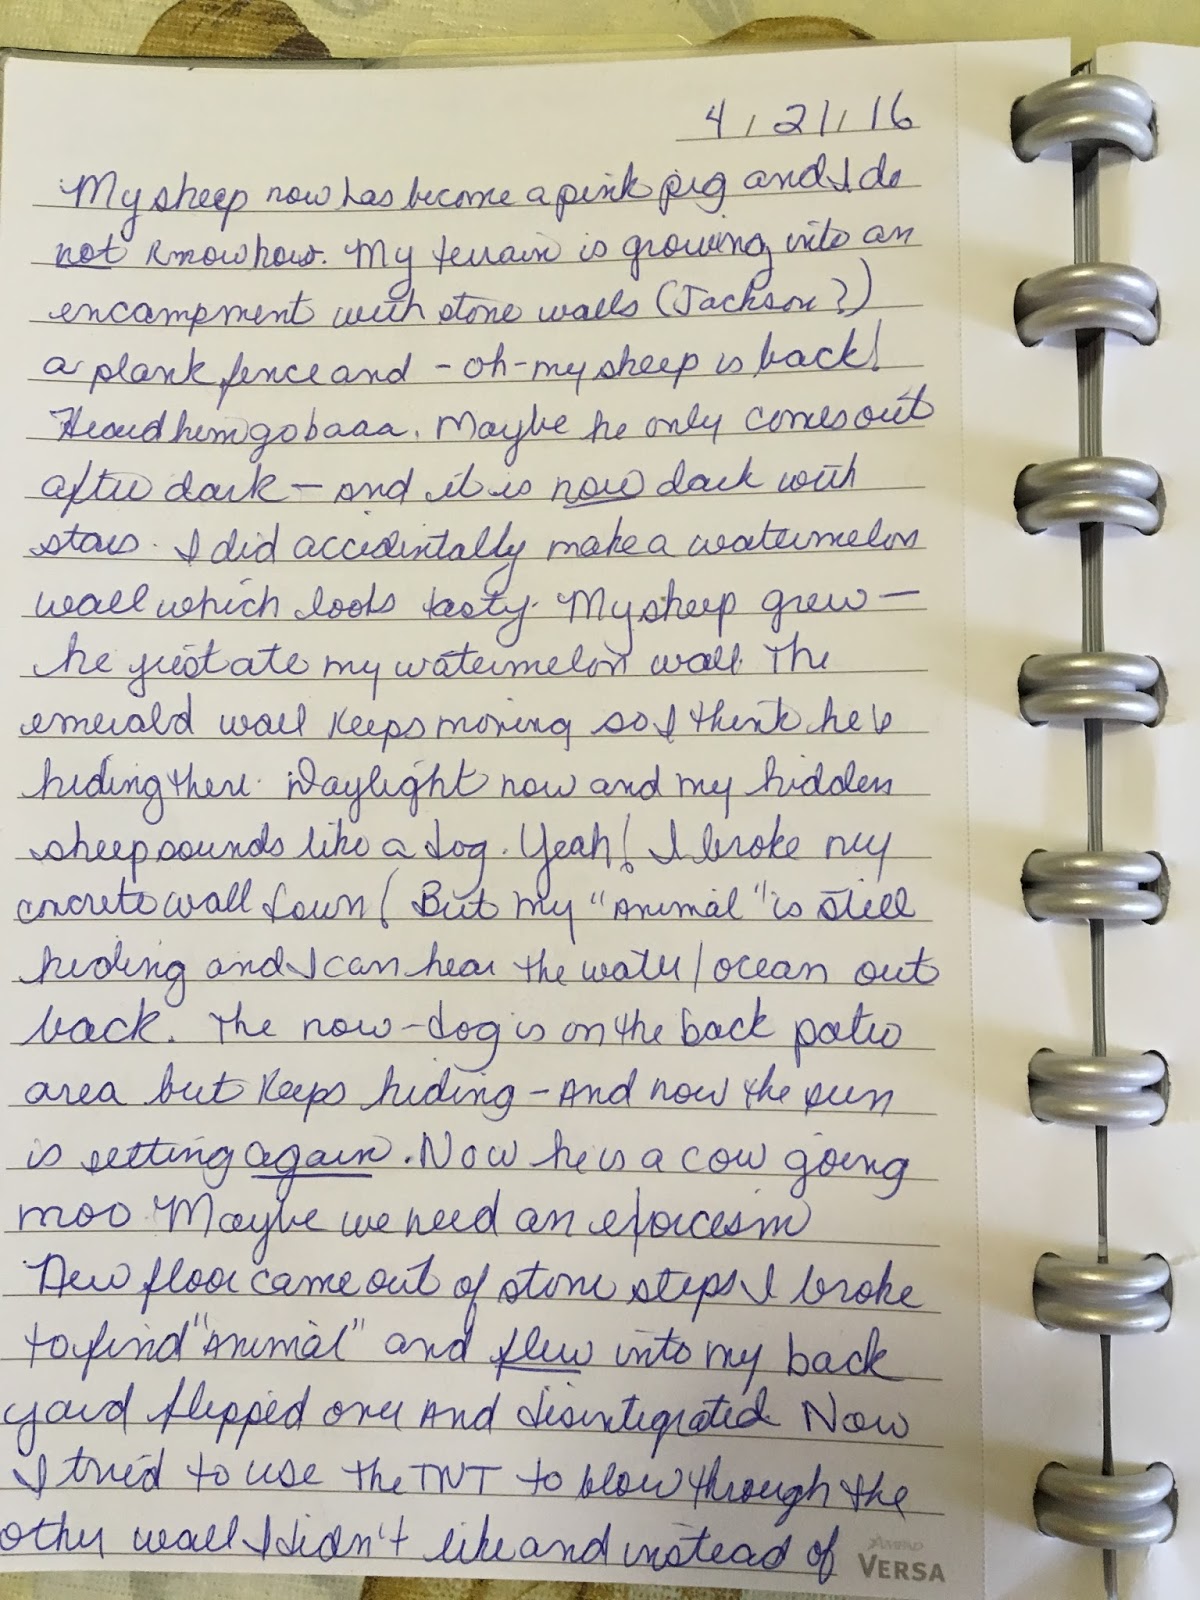 4/21/16
My sheep now has become a pink pig and I do
not know how. My terrain is growing into an
encampment with stone walls (Jackson?)
a plank fence and - oh - my sheep is back!
Heard him go baaa. Maybe he only comes out
after dark - and it is now dark with
stars. I did accidentally make a watermelon
wall which looks tasty. My sheep grew -
he just ate my watermelon wall. The
emerald wall keeps moving so I think he's
hiding there. Daylight now and my hidden
sheep sounds like a dog. Yeah! I broke my
concrete wall down! But my "Animal" is still
hiding and I can hear the water/ocean out
back. The now-dog is on the back patio
area but keeps hiding - And now the sun
is setting again. Now he is a cow going
moo. Maybe we need an exorcesim
New floor came out of stone steps I broke
to find "Animal" and flew into my back
yard flipped over And disintegrated Now
I tried to use the TNT to blow through the
other wall I didn't like and instead of
AMPAD
VERSA